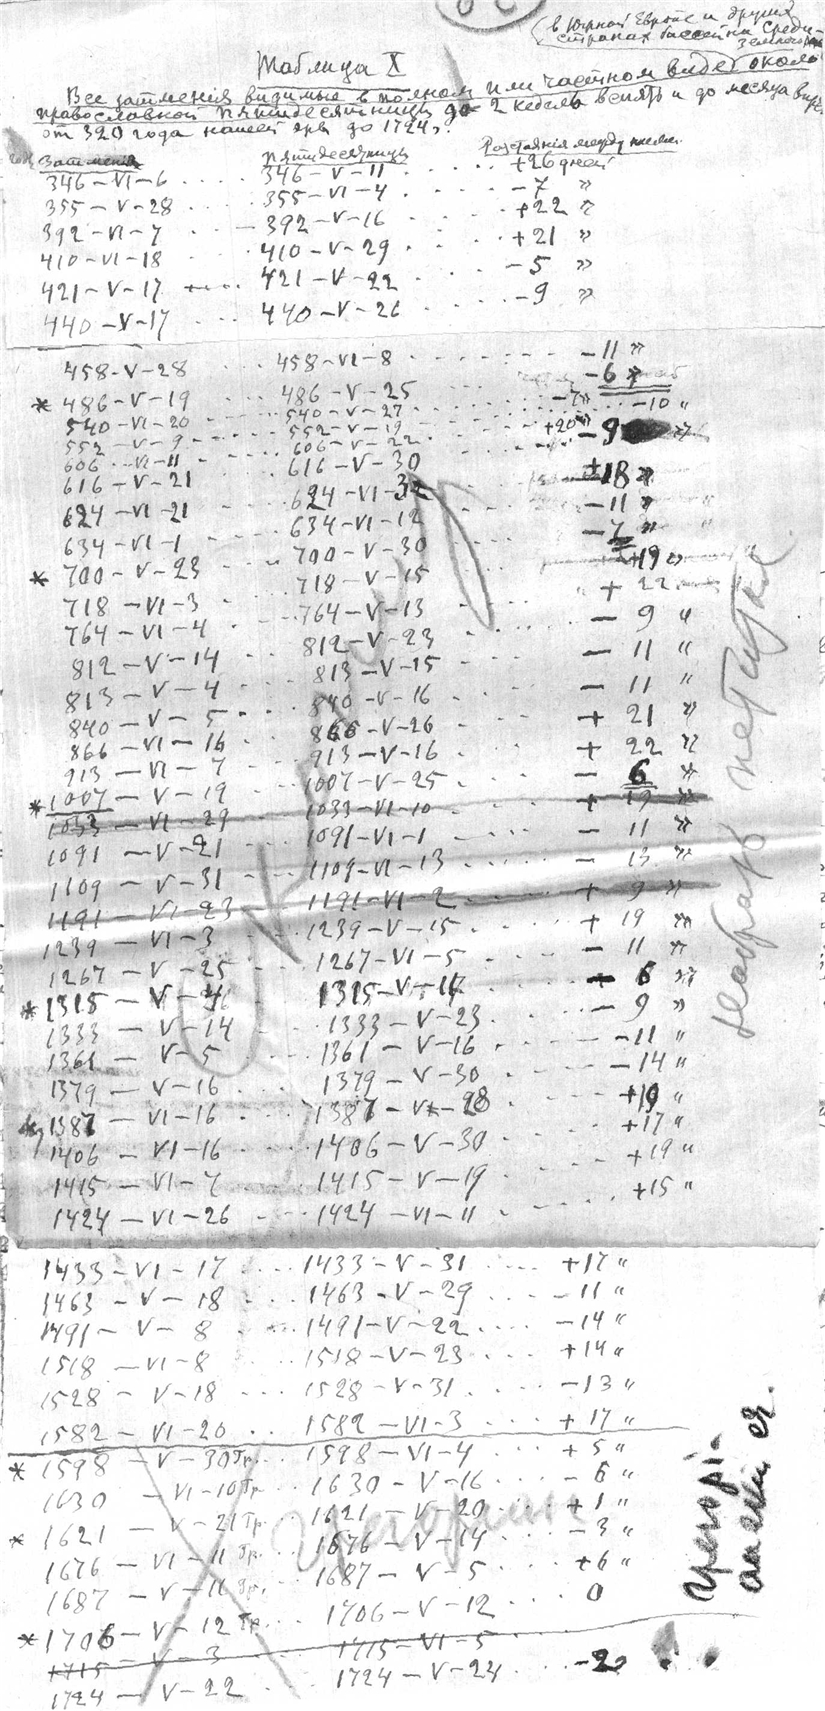 в Южной Европе и других
странах бассейна Среди-
земного
Таблица X
Все затмения видимые в полном или частном виде около
православной пятидесятницы до 2 недель вспять и до месяца впер.
от 320 года нашей эры до 1724.
Затмения Пятидесятницы Разстояния между ними.
346-VI-6 .... 346-V-11 ..... +26 дней
355-V-28 .... 355-V-4 ..... -7 "
392-VI-7 ... 392-V-16 ..... +22 "
410-VI-18 .... 410-V-29 ..... +21 "
421-V-17 .... 421-V-22 ..... -5 "
440-V-17 ... 440-V-26 ..... -9 "
458-V-28 .... 458-VI-8 ...... -11 "
* 486-V-19 .... 486-V-25 ...... -6 "
540-VI-20 .... 540-V-27 ...... -7" -10 "
552-V-9 .... 552-V-19 ..... +20"
606-VI-11 .... 606-V-22 ..... -9 "
616-V-21 .... 616-V-30
624-VI-21 .... 624-VI-3 ..... +18 "
634-VI-1 .... 634-VI-12 ..... -11 "
* 700-V-23 .... 700-V-30 ..... -7 "
718-VI-3 .... 718-V-15 ..... +19 "
764-VI-4 .... 764-V-13 .... + 22 "
812-V-14 .... 812-V-23 .... - 9 "
813-V-4 .... 813-V-15 .... - 11 "
840-V-5 .... 840-V-16 .... - 11 "
866-VI-16 .... 866-V-26 .... + 21 "
913-VI-7 .... 913-V-16 .... + 22 "
* 1007-V-19 ... 1007-V-25 .... - 6 "
1033-VI-29 ... 1033-VI-10 .... + 19 "
1091-V-21 .... 1091-VI-1 ..... - 11 "
1109-V-31 .... 1109-VI-13 .... - 13 "
1191-VI-23 ... 1191-VI-2 .... + 9 "
1239-VI-3 .... 1239-V-15 .... + 19 "
1267-V-25 ... 1267-VI-5 .... - 11 "
* 1315-V- ... 1315-V- .... 6 "
1333-V-14 .... 1333-V-23 .... - 9 "
1361-V-5 .... 1361-V-16 .... -11 "
1379-V-16 .... 1379-V-30 .... -14 "
* 1387-VI-16 .... 1387-V-28 .... +19 "
1406-VI-16 .... 1406-V-30 .... +17 "
1415-VI-7 .... 1415-V-19 .... +19 "
1424-VI-26 .... 1424-VI-11 .... +15 "
1433-VI-17 .... 1433-V-31 .... +17 "
1463-V-18 .... 1463-V-29 .... -11 "
1491-V-8 .... 1491-V-22 .... -14 "
1518-VI-8 .... 1518-V-23 .... +14 "
1528-V-18 ... 1528-V-31 .... -13 "
1582-VI-20 .. 1582-VI-3 .... + 17 "
* 1598-V-30 Гр... 1598-VI-4 .... + 5 "
1630-VI-10 Гр. 1630-V-16 .... - 6 "
* 1621-V-21 Гр. .. 1621-V-20 .... + 1 "
1676-VI-11 Гр. ... 1676-V-14 .... - 3 "
1687-V-11 Гр. ... 1687-V-5 .... +6 "
* 1706-V-12 Гр. ... 1706-V-12 .... 0
1715-V-3 .... 1715-VI-5 ....
1724-V-22 .... 1724-V-24 .... -2
Григориан